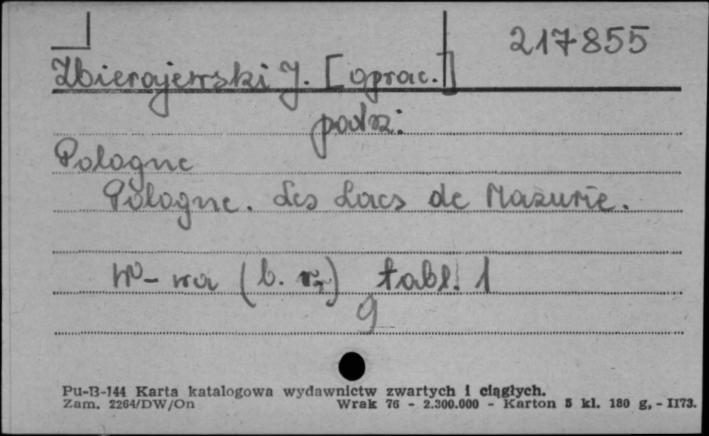 217855
Zbierajewski J. [oprac.]
podz:
Pologne
Pologne. Les Lacs de Mazurie.
W-wa (b. r.) tabl. 1
9
Pu-B-144 Karta katalogowa wydawnictw zwartych i ciągłych.
Zam. 2264/DW/On Wrak 76 - 2.300.000 - Karton 5 kl. 180 g, - II73.